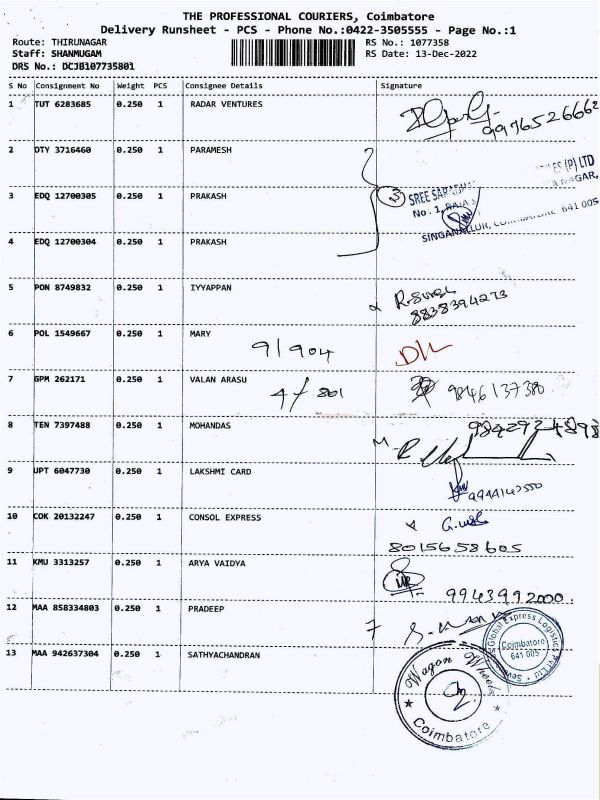 THE PROFESSIONAL COURIERS, Coimbatore
Delivery Runsheet - PCS - Phone No.:0422-3505555 - Page No.:1
Route: THIRUNAGAR RS No.: 1077358
Staff: SHANMUGAM RS Date: 13-Dec-2022
DRS No.: DCJB107735801
S No Consignment No Weight PCS Consignee Details Signature
1 TUT 6283685 0.250 1 RADAR VENTURES
9976526662
2 DTY 3716460 0.250 1 PARAMESH
3 EDQ 12700305 0.250 1 PRAKASH
3 SREE
No: 1, RAJA
SINGANALLUR, 641 005
4 EDQ 12700304 0.250 1 PRAKASH
5 PON 8749832 0.250 1 IYYAPPAN
8838394273
6 POL 1549667 0.250 1 MARY
9/904
7 GPM 262171 0.250 1 VALAN ARASU
4/801 9846137380
8 TEN 7397488 0.250 1 MOHANDAS
9842934898
9 UPT 6047730 0.250 1 LAKSHMI CARD
9944142550
10 COK 20132247 0.250 1 CONSOL EXPRESS
8015658605
11 KMU 3313257 0.250 1 ARYA VAIDYA
9943992000
12 MAA 858334803 0.250 1 PRADEEP
Global Express Logistics Pvt Ltd
Coimbatore
641 005
13 MAA 942637304 0.250 1 SATHYACHANDRAN
Wagon Wheels
Coimbatore